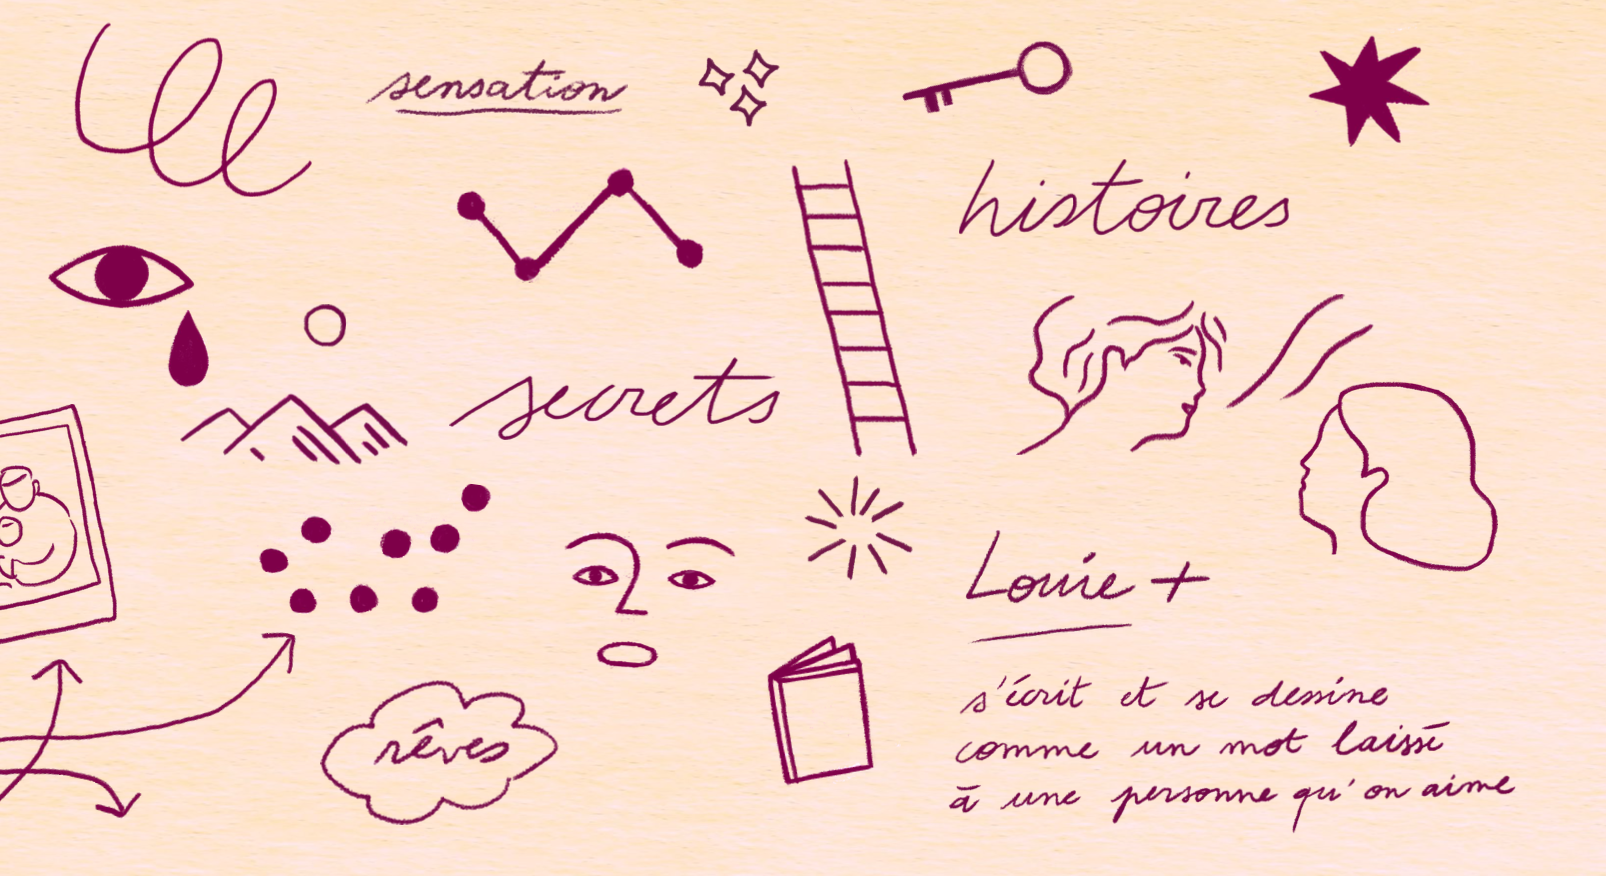 sensation
histoires
secrets
Louie +
rêves
s'écrit et se dessine
comme un mot laissé
à une personne qu'on aime